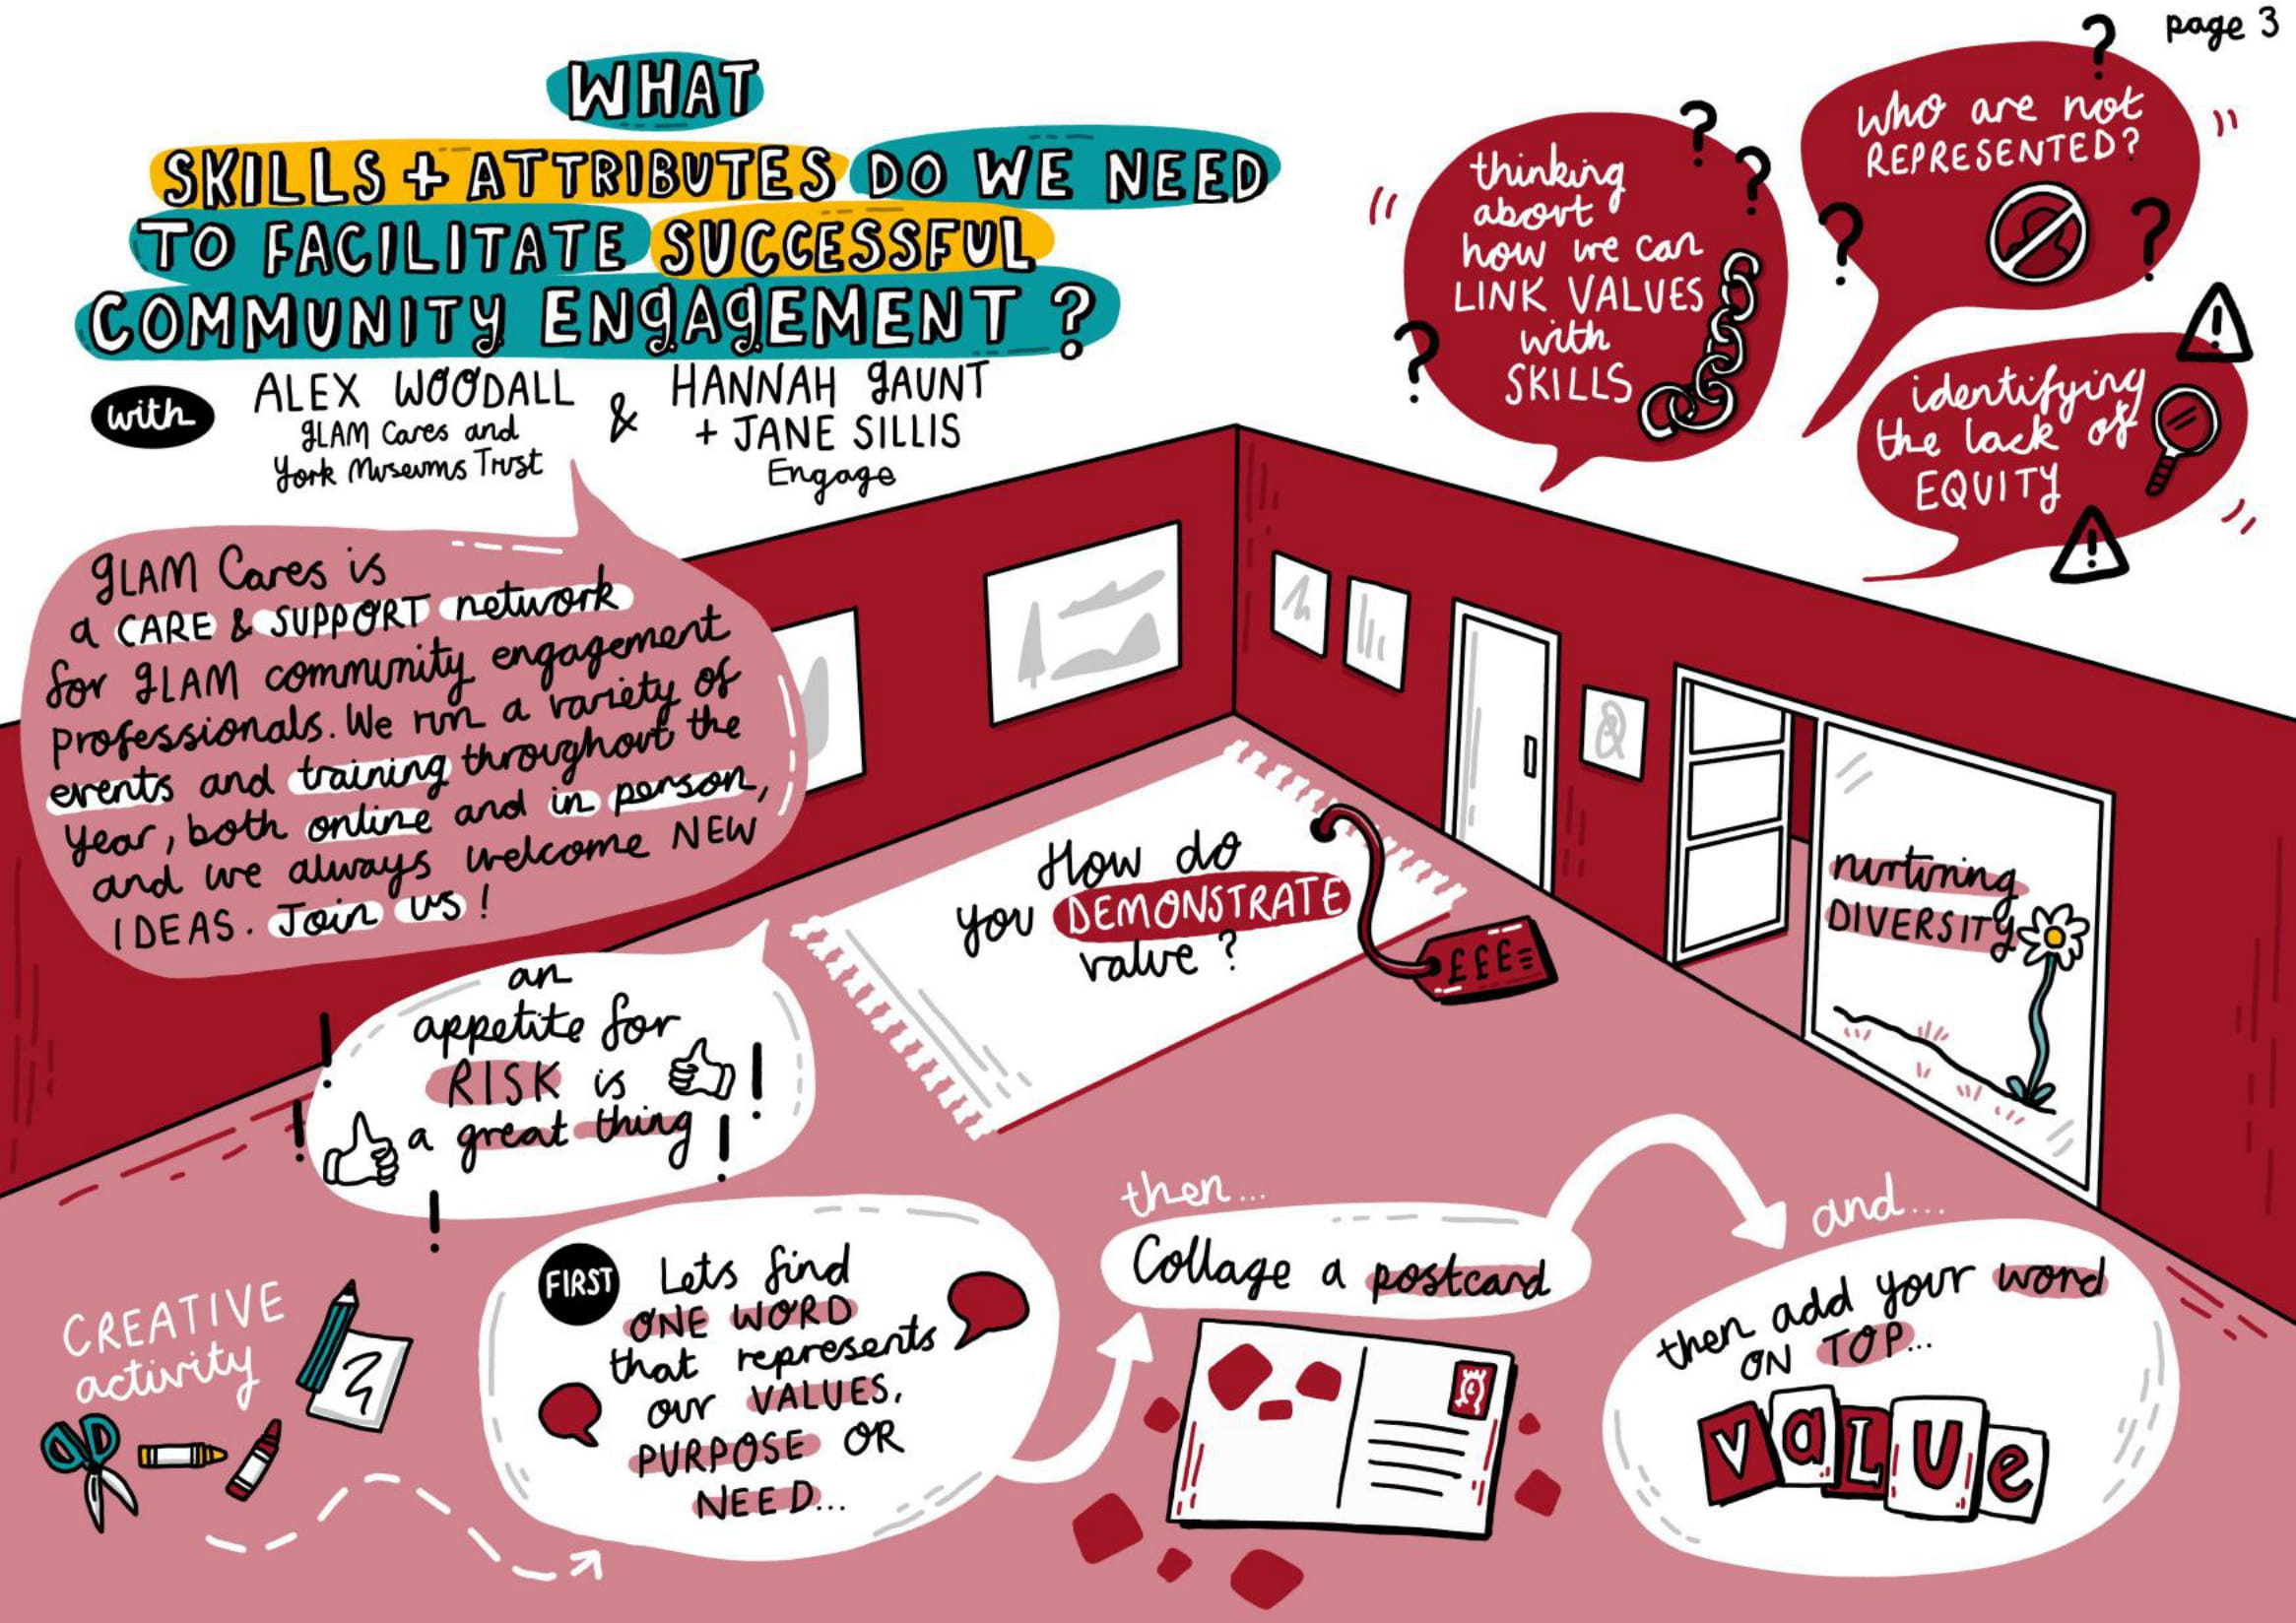 page 3
WHAT
SKILLS + ATTRIBUTES DO WE NEED
TO FACILITATE SUCCESSFUL
COMMUNITY ENGAGEMENT ?
with
ALEX WOODALL
GLAM Cares and
York Museums Trust
&
HANNAH GAUNT
+ JANE SILLIS
Engage
thinking
about
how we can
LINK VALUES
with
SKILLS
who are not
REPRESENTED?
identifying
the lack of
EQUITY
GLAM Cares is
a CARE & SUPPORT network
for GLAM community engagement
professionals. We run a variety of
events and training throughout the
year, both online and in person,
and we always welcome NEW
IDEAS. Join us!
How do
you DEMONSTRATE
value ?
£££
nurturing
DIVERSITY
an
appetite for
RISK is
a great thing
CREATIVE
activity
FIRST
Lets find
ONE WORD
that represents
our VALUES,
PURPOSE OR
NEED...
then...
Collage a postcard
and...
then add your word
ON TOP...
VaLUe